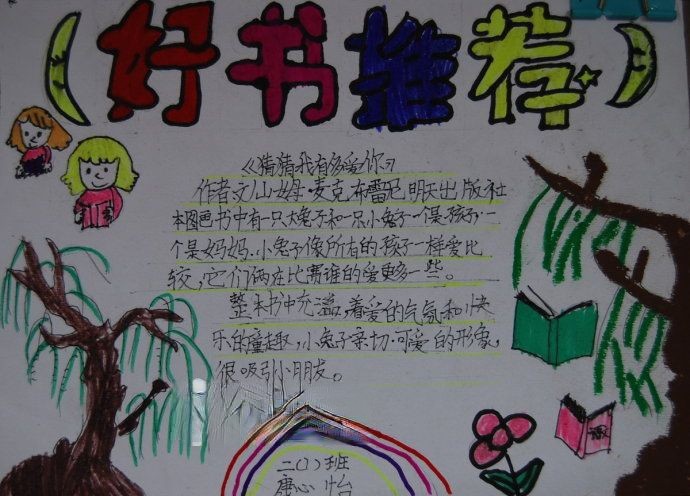 好书推荐
《猜猜我有多爱你》
作者文/山姆·麦克布雷尼 明天出版社
本图画书中有一只大兔子和一只小兔子一个是孩子,一
个是妈妈.小兔子像所有的孩子一样爱比
较,它们俩在比赛谁的爱更多一些。
整本书中充溢,着爱的气氛和快
乐的童趣,小兔子亲切.可爱的形象,
很吸引小朋友。
二(1)班
唐心怡